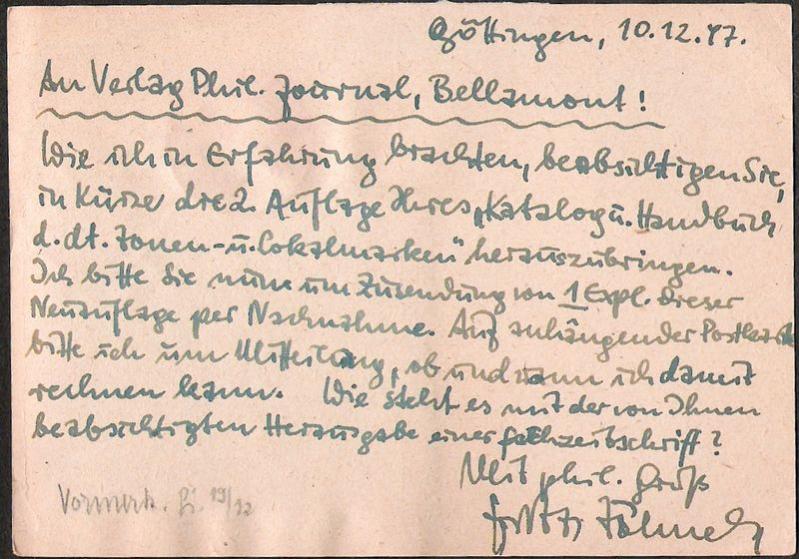 Göttingen, 10.12.47.
An Verlag Phil. Journal, Bellamont!
Wie ich in Erfahrung brachten, beabsichtigen Sie,
in Kürze die 2. Auflage Ihres „Katalog u. Handbuch
d. dt. Zonen- u. Lokalmarken" herauszubringen.
Ich bitte Sie nun um Zusendung von 1 Expl. dieser
Neuauflage per Nachnahme. Auf anhängender Postkarte
bitte ich um Mitteilung, ob und wann ich damit
rechnen kann. Wie steht es mit der von Ihnen
beabsichtigten Herausgabe einer Fachzeitschrift?
Mit phil. Gruß
Fritz
Vormerk. 19/12